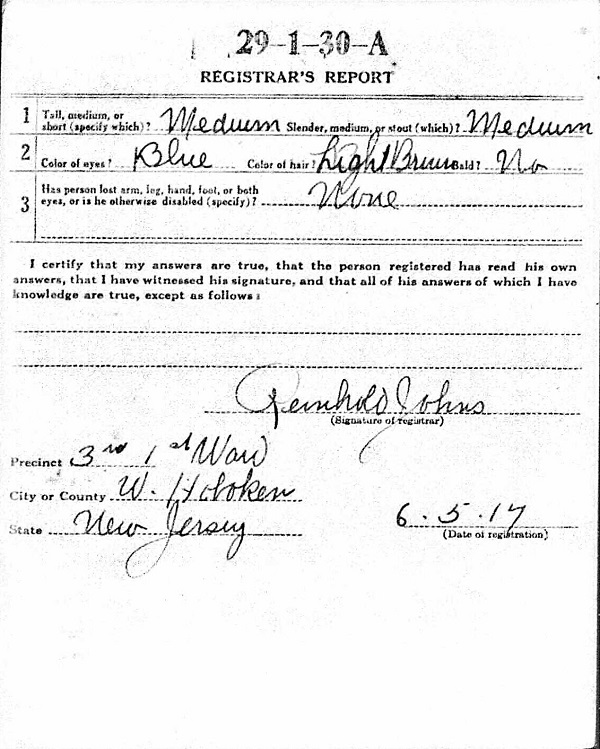 29-1-30-A
REGISTRAR'S REPORT
1 Tall, medium, or short (specify which)? Medium Slender, medium, or stout (which)? Medium
2 Color of eyes? Blue Color of hair? Light Brown Bald? No
3 Has person lost arm, leg, hand, foot, or both eyes, or is he otherwise disabled (specify)? None
I certify that my answers are true, that the person registered has read his own
answers, that I have witnessed his signature, and that all of his answers of which I have
knowledge are true, except as follows:
Reinhold Johns
(Signature of registrar)
Precinct 3rd 1st Ward
City or County W. Hoboken
State New Jersey
6.5.17
(Date of registration)